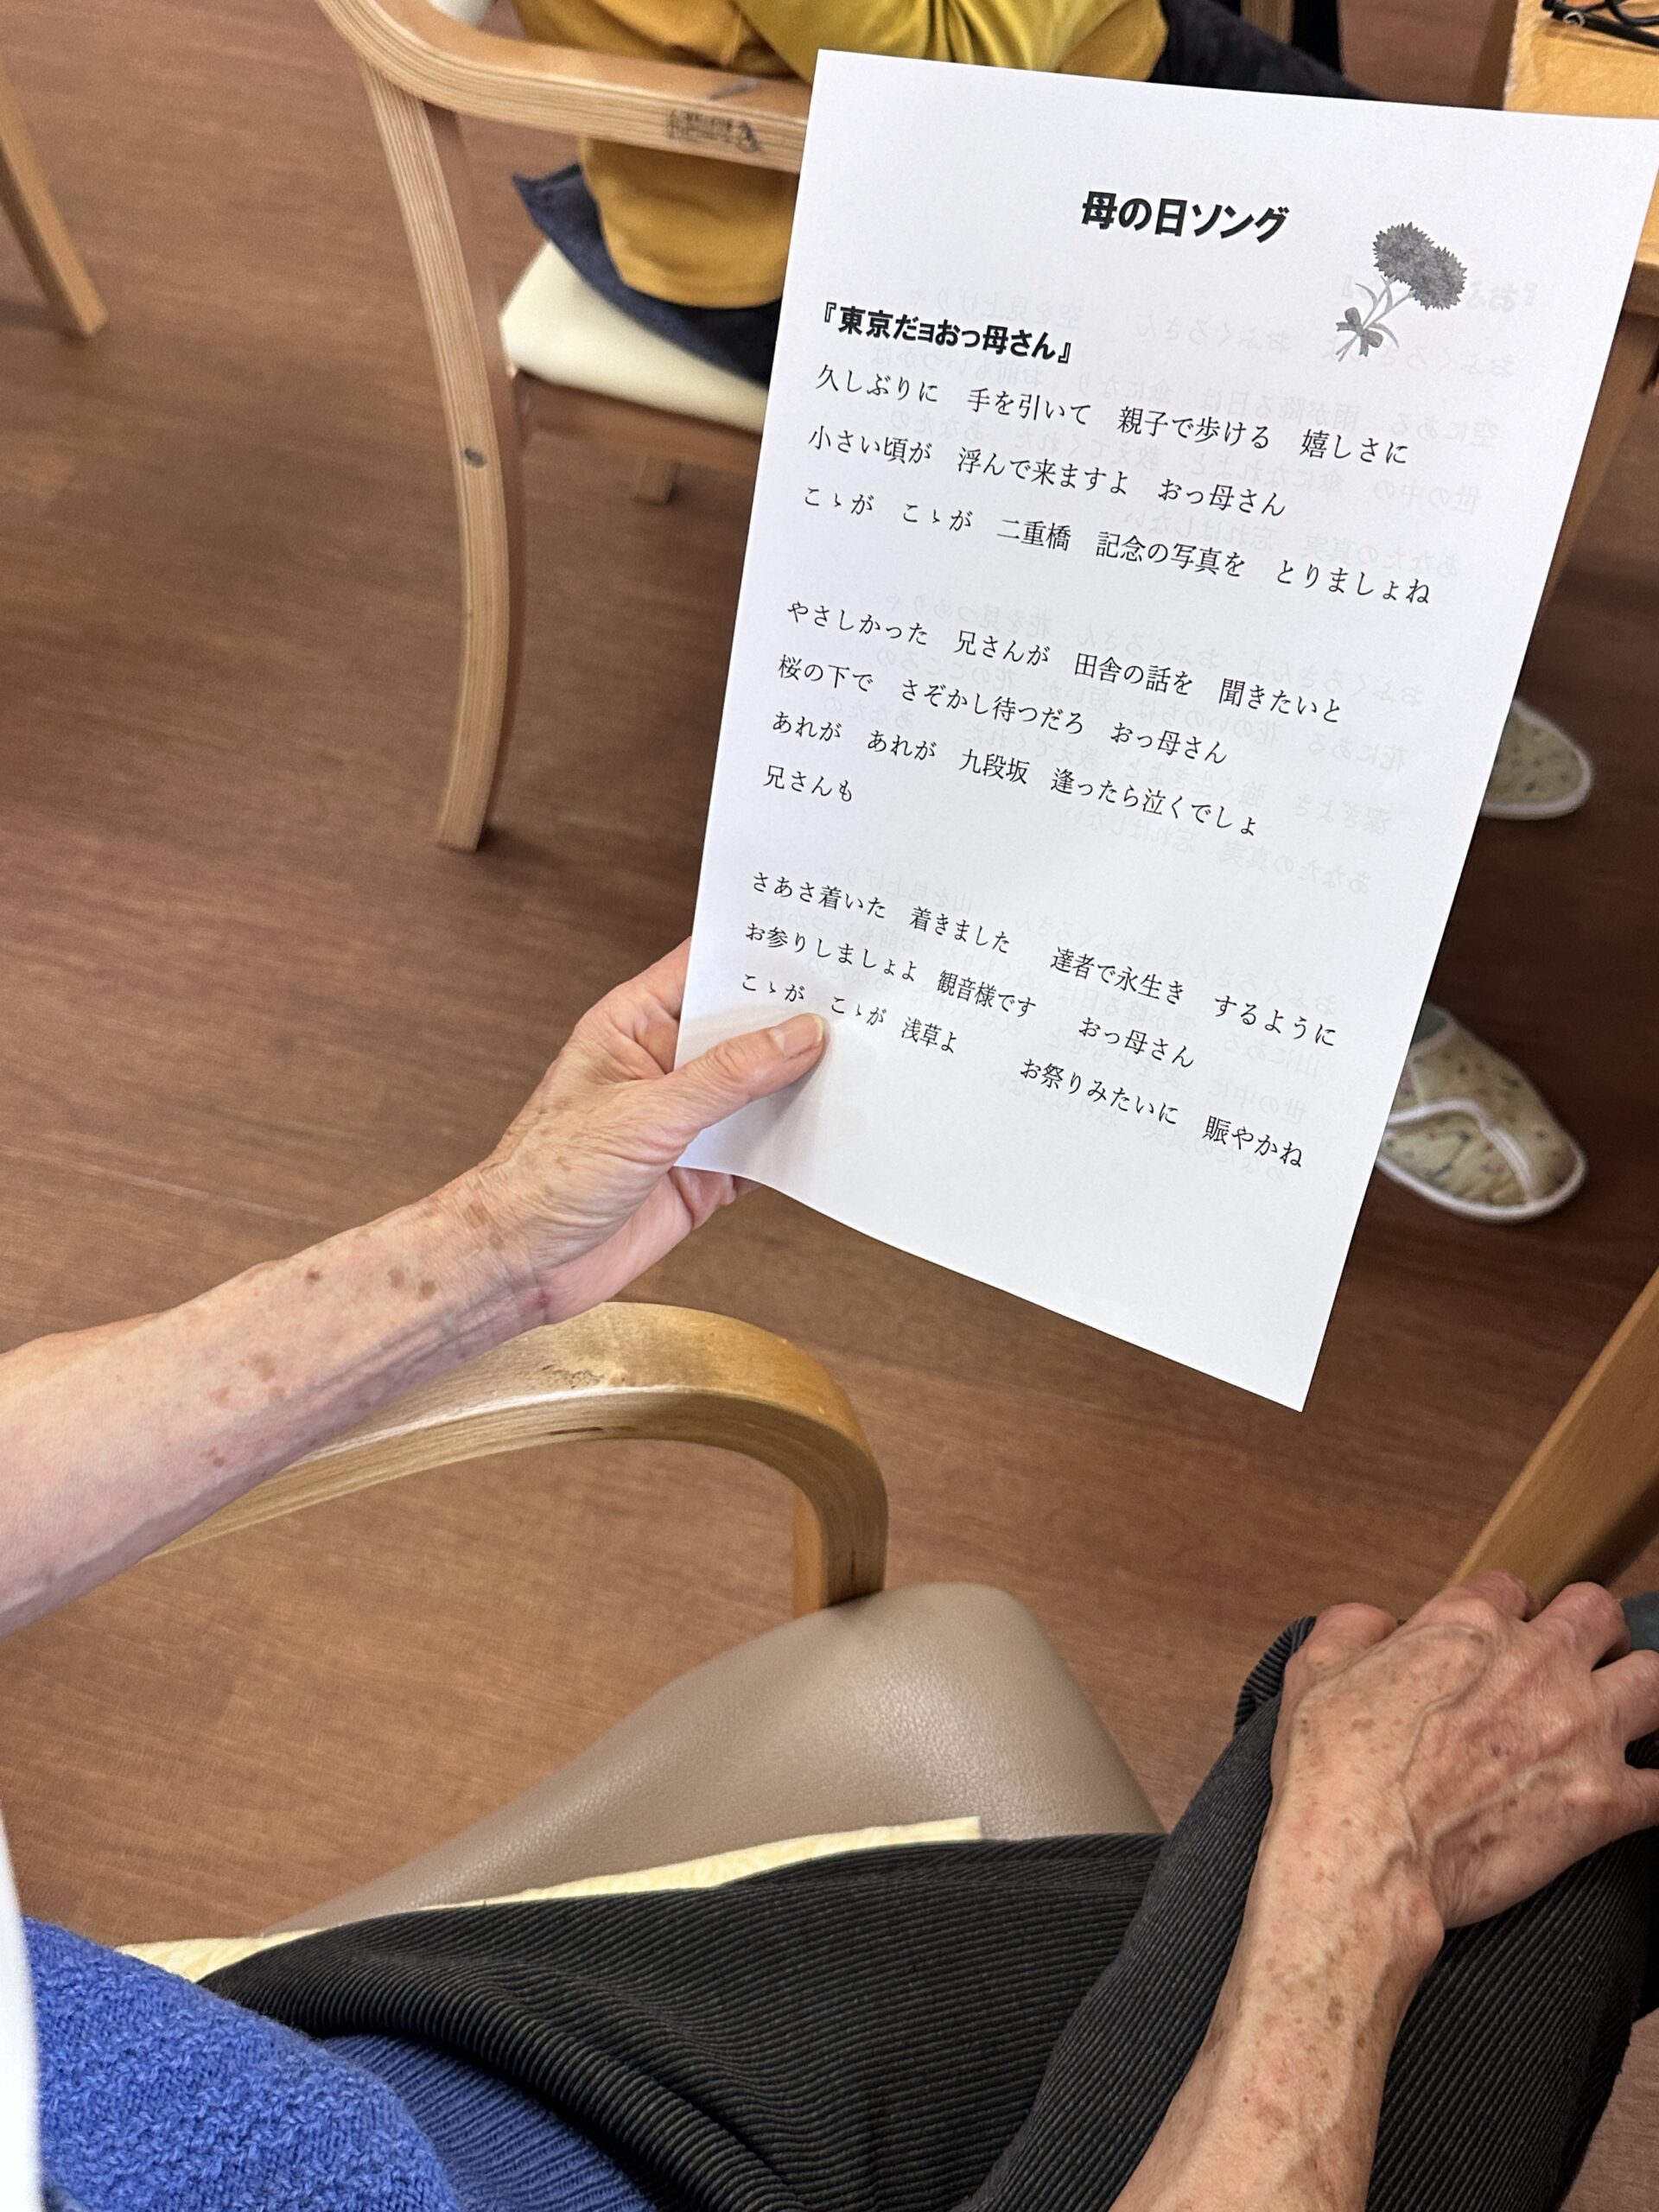 母の日ソング
『東京だョおっ母さん』
久しぶりに　手を引いて　親子で歩ける　嬉しさに
小さい頃が　浮んで来ますよ　おっ母さん
こゝが　こゝが　二重橋　記念の写真を　とりましょね
やさしかった　兄さんが　田舎の話を　聞きたいと
桜の下で　さぞかし待つだろ　おっ母さん
あれが　あれが　九段坂　逢ったら泣くでしょ
兄さんも
さあさ着いた　着きました　達者で永生き　するように
お参りしましょよ　観音様です　おっ母さん
こゝが　こゝが　浅草よ　お祭りみたいに　賑やかね